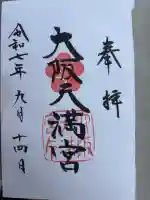 奉拝
大阪天満宮
令和七年九月十四日